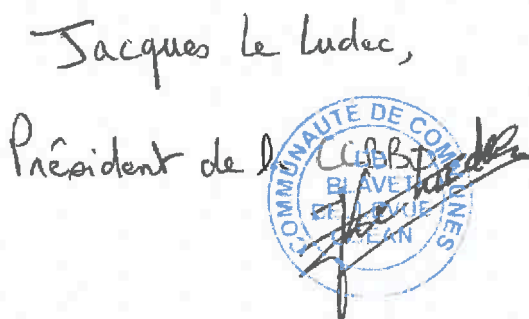 Jacques Le Ludec,
Président de la CCBBO
COMMUNAUTÉ DE COMMUNES
BLAVET
BELLEVUE
OCÉAN